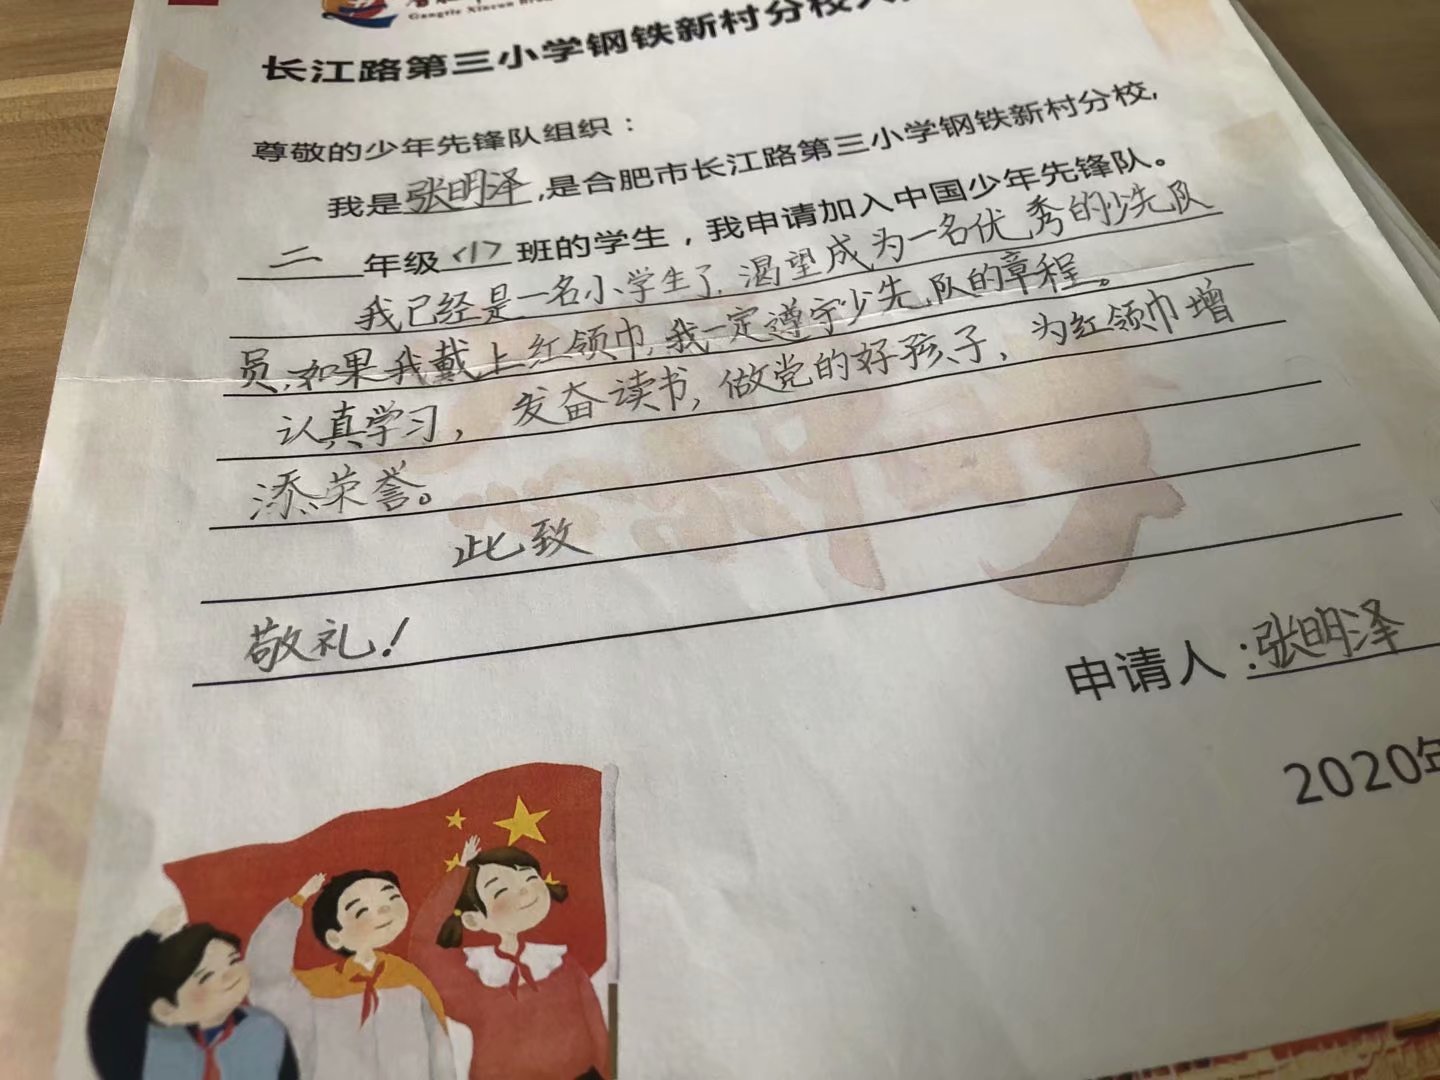 Gangtie Xincun
长江路第三小学钢铁新村分校入
尊敬的少年先锋队组织：
我是张明泽,是合肥市长江路第三小学钢铁新村分校,
二年级〈1〉班的学生，我申请加入中国少年先锋队。
我已经是一名小学生了,渴望成为一名优秀的少先队
员,如果我戴上红领巾,我一定遵守少先队的章程。
认真学习，发奋读书,做党的好孩子，为红领巾增
添荣誉。
此致
敬礼！
申请人:张明泽
2020年